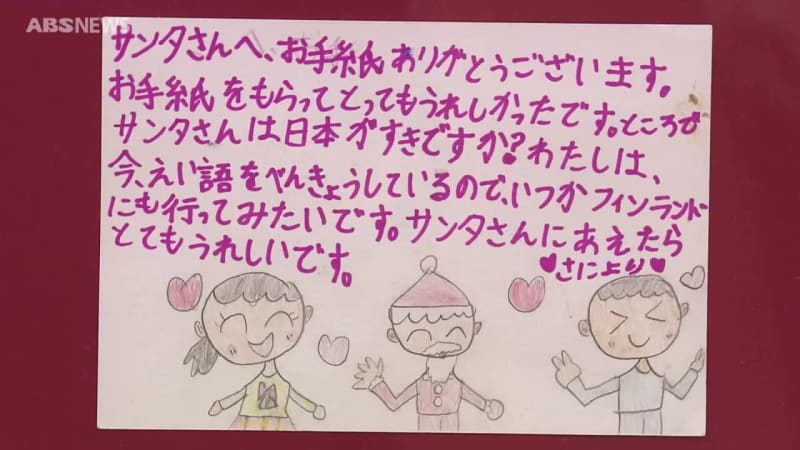 ABSNEWS
サンタさんへ、お手紙ありがとうございます。
お手紙をもらってとってもうれしかったです。ところで
サンタさんは日本がすきですか?わたしは、
今、えい語をべんきょうしているので、いつかフィンランド
にも行ってみたいです。サンタさんにあえたら
とてもうれしいです。
♥さにより♥